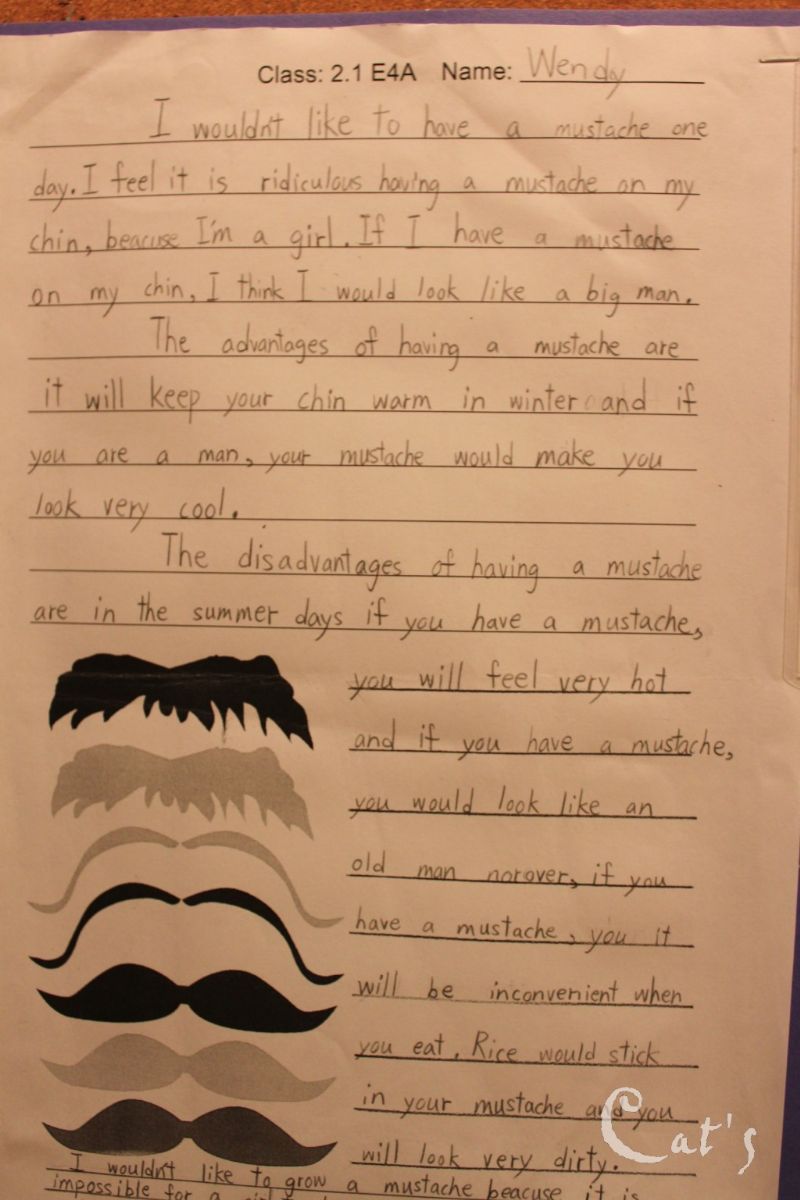 Class: 2.1 E4A Name: Wendy
I wouldn't like to have a mustache one
day. I feel it is ridiculous having a mustache on my
chin, beacuse I'm a girl. If I have a mustache
on my chin, I think I would look like a big man.
The advantages of having a mustache are
it will keep your chin warm in winter and if
you are a man, your mustache would make you
look very cool.
The disadvantages of having a mustache
are in the summer days if you have a mustache,
you will feel very hot
and if you have a mustache,
you would look like an
old man norover, if you
have a mustache, you it
will be inconvenient when
you eat. Rice would stick
in your mustache and you
will look very dirty.
I wouldn't like to grow a mustache beacuse it is
impossible for a
Cat's